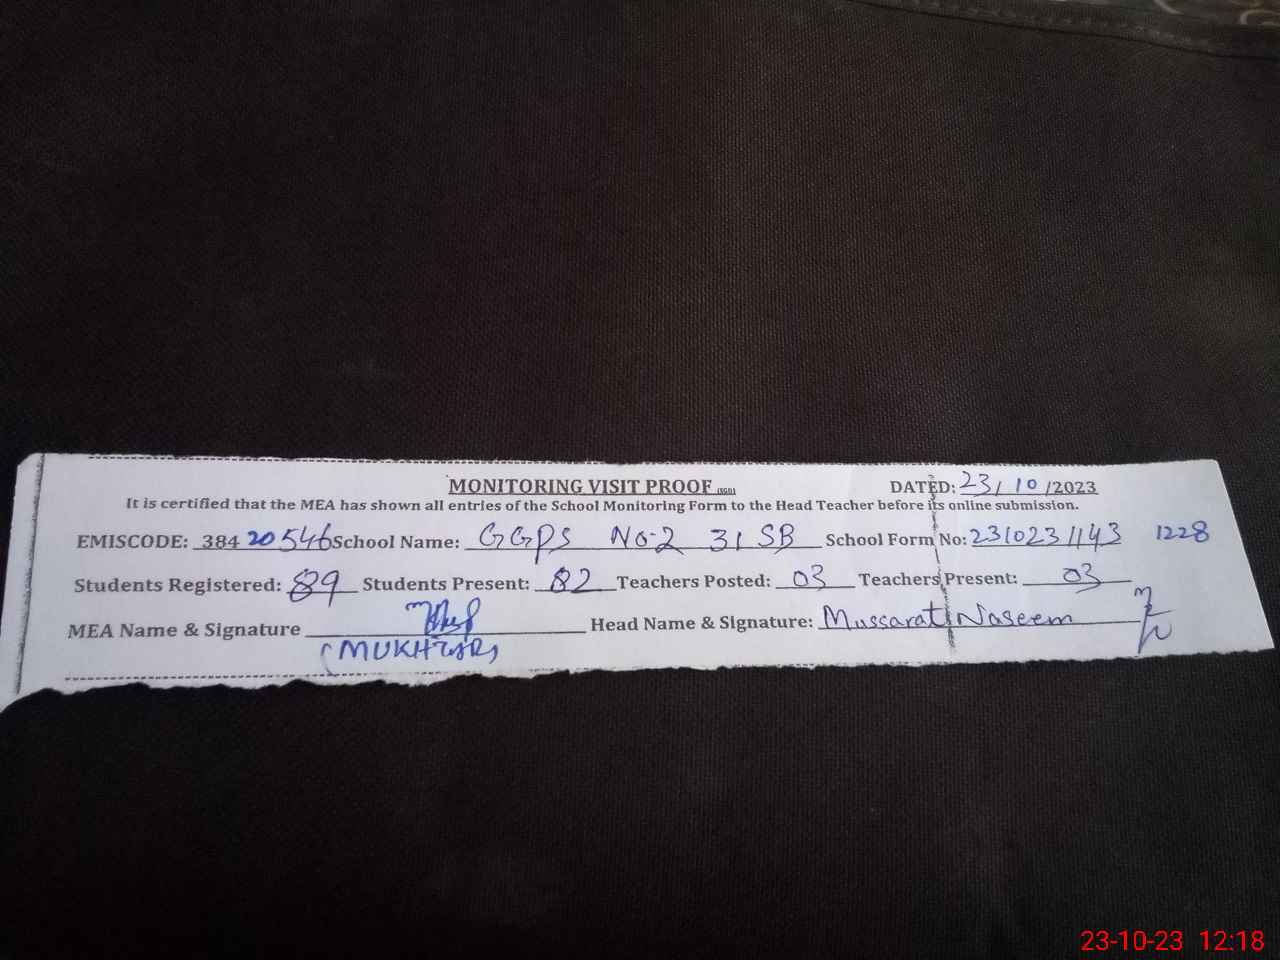 MONITORING VISIT PROOF (SGD) DATED: 23/10/2023
It is certified that the MEA has shown all entries of the School Monitoring Form to the Head Teacher before its online submission.
EMISCODE: 38420546 School Name: GGPS No-2 31 SB School Form No: 2310231143 1228
Students Registered: 89 Students Present: 82 Teachers Posted: 03 Teachers Present: 03
MEA Name & Signature Head Name & Signature: Mussarat Naseem
(MUKHTAR)
23-10-23 12:18